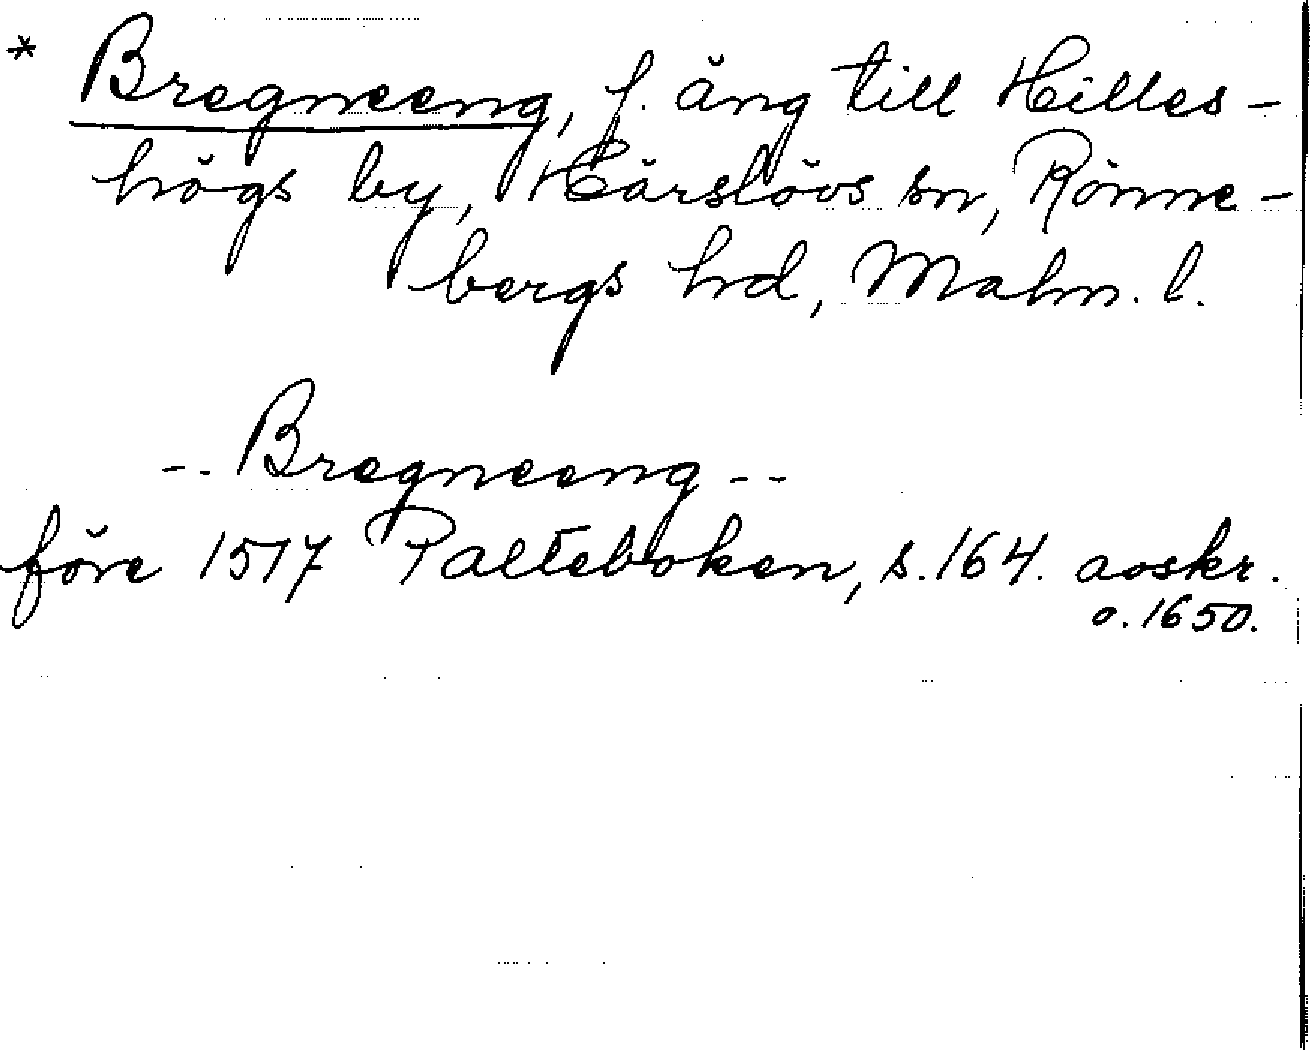 * Bregneeng, f. äng till Hilles-
högs by, Härslövs sn, Rönne-
bergs hd, Malm. l.
-- Bregneeng --
före 1517 Palteboken, s. 164. avskr.
o. 1650.